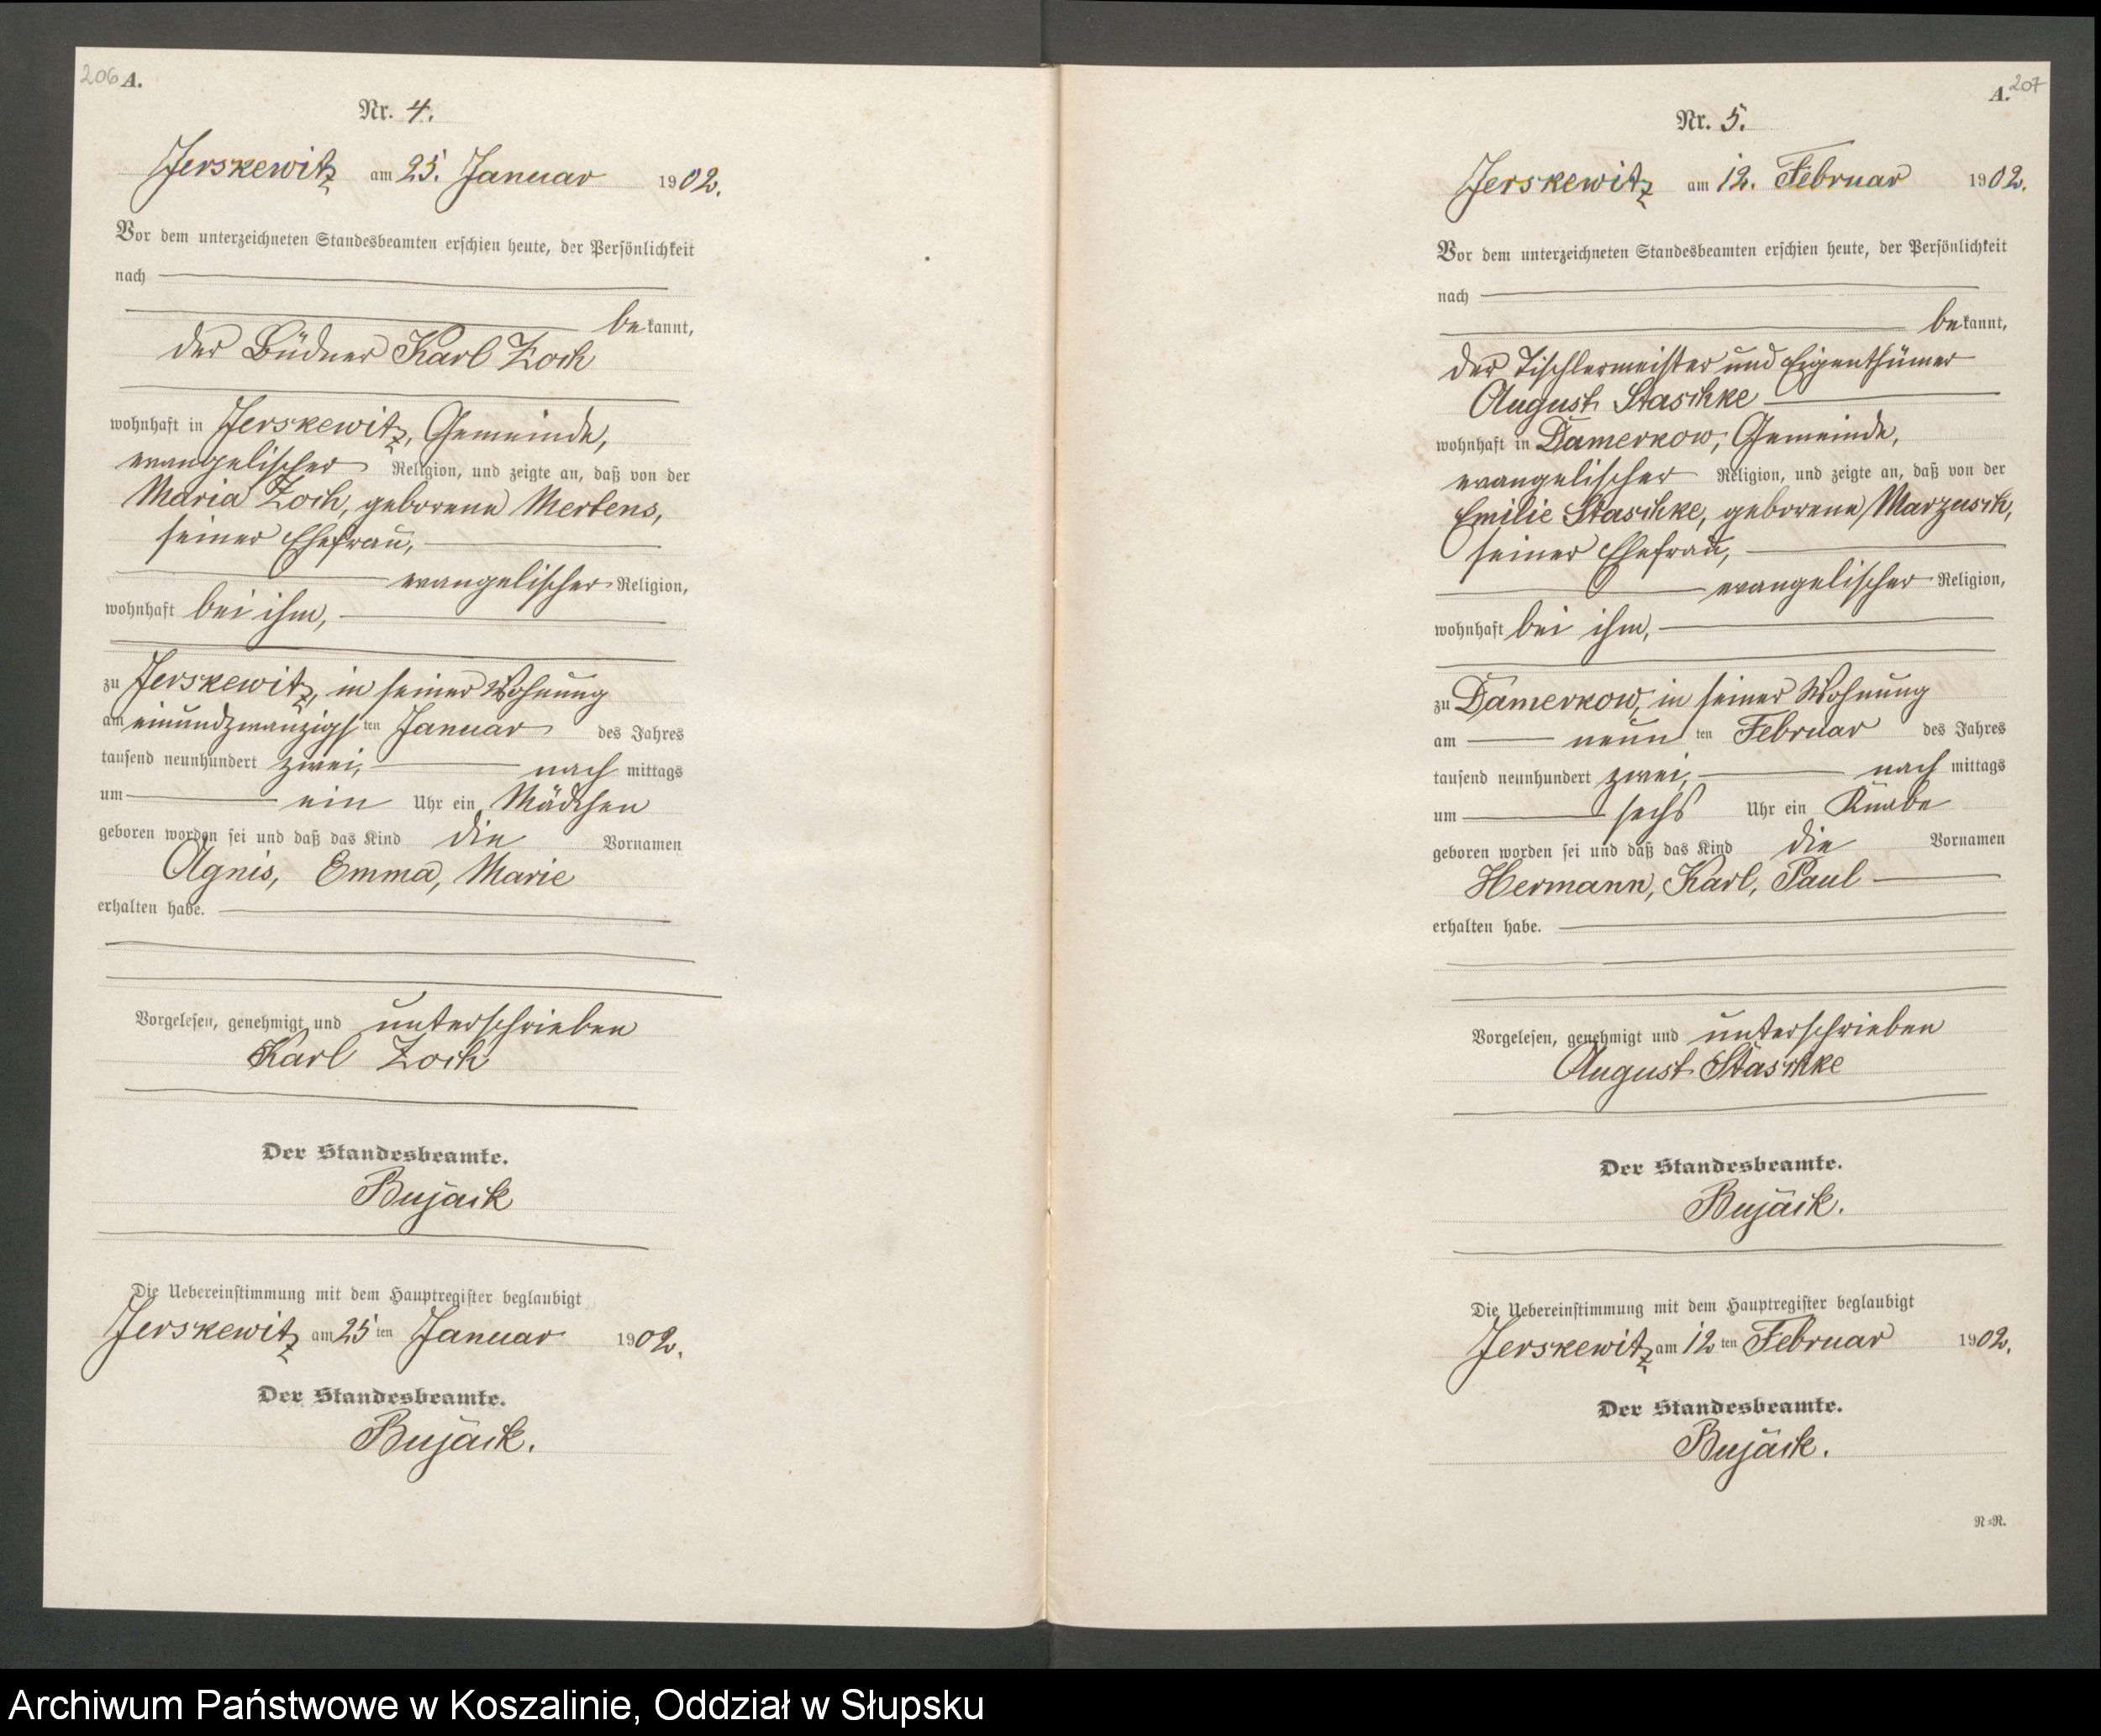 206 A.
Nr. 4.
Jerskewitz am 25. Januar 1902.
Vor dem unterzeichneten Standesbeamten erschien heute, der Persönlichkeit
nach
bekannt,
der Büdner Karl Zoch
wohnhaft in Jerskewitz, Gemeinde,
evangelischer Religion, und zeigte an, daß von der
Maria Zoch, geborene Mertens,
seiner Ehefrau,
evangelischer Religion,
wohnhaft bei ihm,
zu Jerskewitz, in seiner Wohnung
am einundzwanzigsten Januar des Jahres
tausend neunhundert zwei, nach mittags
um ein Uhr ein Mädchen
geboren worden sei und daß das Kind die Vornamen
Agnis, Emma, Marie
erhalten habe.
Vorgelesen, genehmigt und unterschrieben
Karl Zoch
Der Standesbeamte.
Bujack
Die Uebereinstimmung mit dem Hauptregister beglaubigt
Jerskewitz am 25 ten Januar 1902.
Der Standesbeamte.
Bujack.
A. 207
Nr. 5.
Jerskewitz am 12. Februar 1902.
Vor dem unterzeichneten Standesbeamten erschien heute, der Persönlichkeit
nach
bekannt,
der Tischlermeister und Eigenthümer
August Staschke
wohnhaft in Damerkow, Gemeinde,
evangelischer Religion, und zeigte an, daß von der
Emilie Staschke, geborene Marzusch,
seiner Ehefrau,
evangelischer Religion,
wohnhaft bei ihm,
zu Damerkow, in seiner Wohnung
am neun ten Februar des Jahres
tausend neunhundert zwei, nach mittags
um sechs Uhr ein Knabe
geboren worden sei und daß das Kind die Vornamen
Hermann, Karl, Paul
erhalten habe.
Vorgelesen, genehmigt und unterschrieben
August Staschke
Der Standesbeamte.
Bujack.
Die Uebereinstimmung mit dem Hauptregister beglaubigt
Jerskewitz am 12 ten Februar 1902.
Der Standesbeamte.
Bujack.
N=R.
Archiwum Państwowe w Koszalinie, Oddział w Słupsku